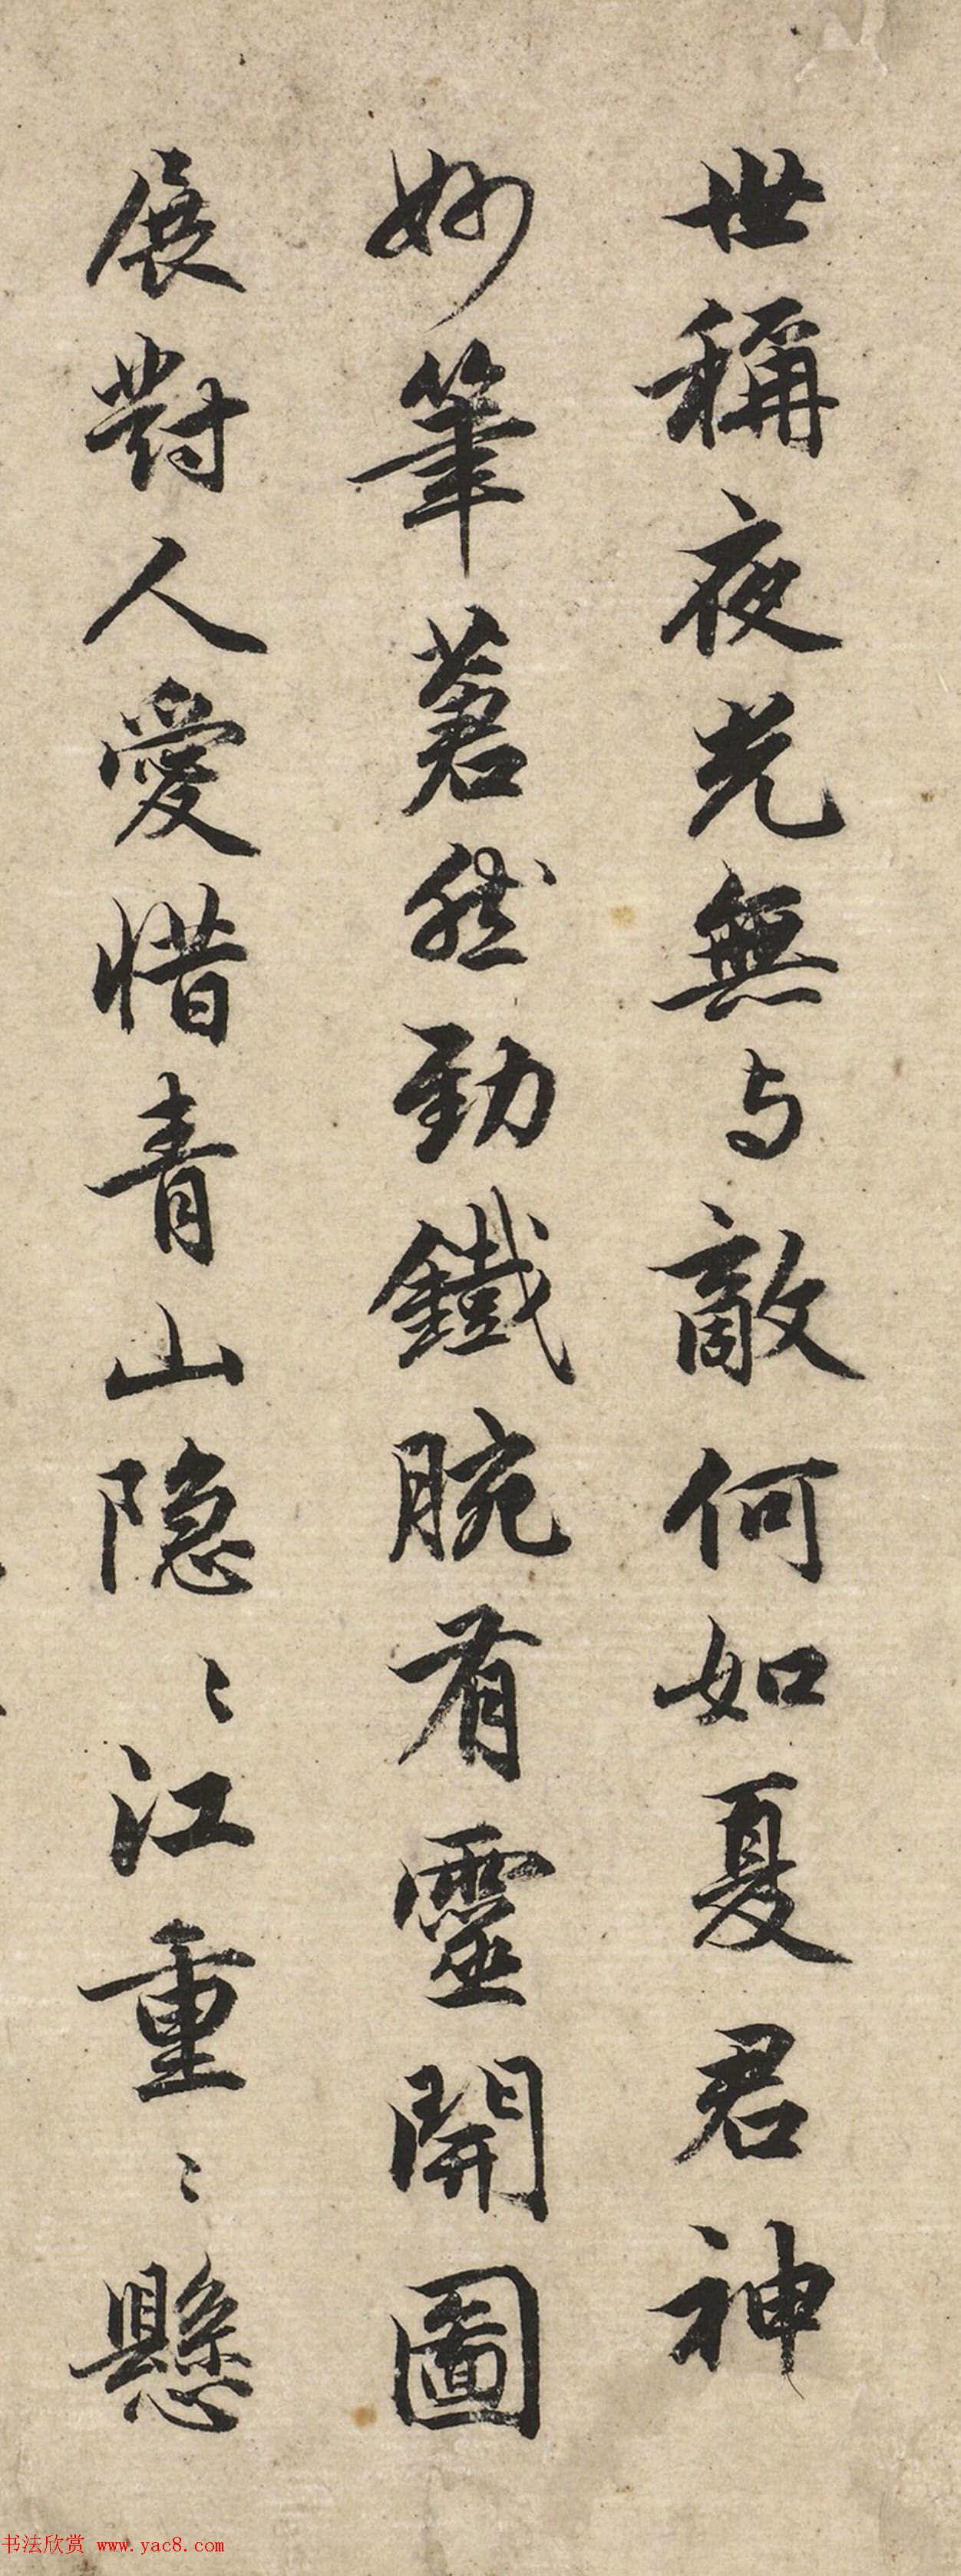 世稱夜光無与敵何如夏君神
妙筆著然勁鐵腕有靈開圖
展對人愛惜青山隐〻江重〻懸
书法欣赏 www.yac8.com